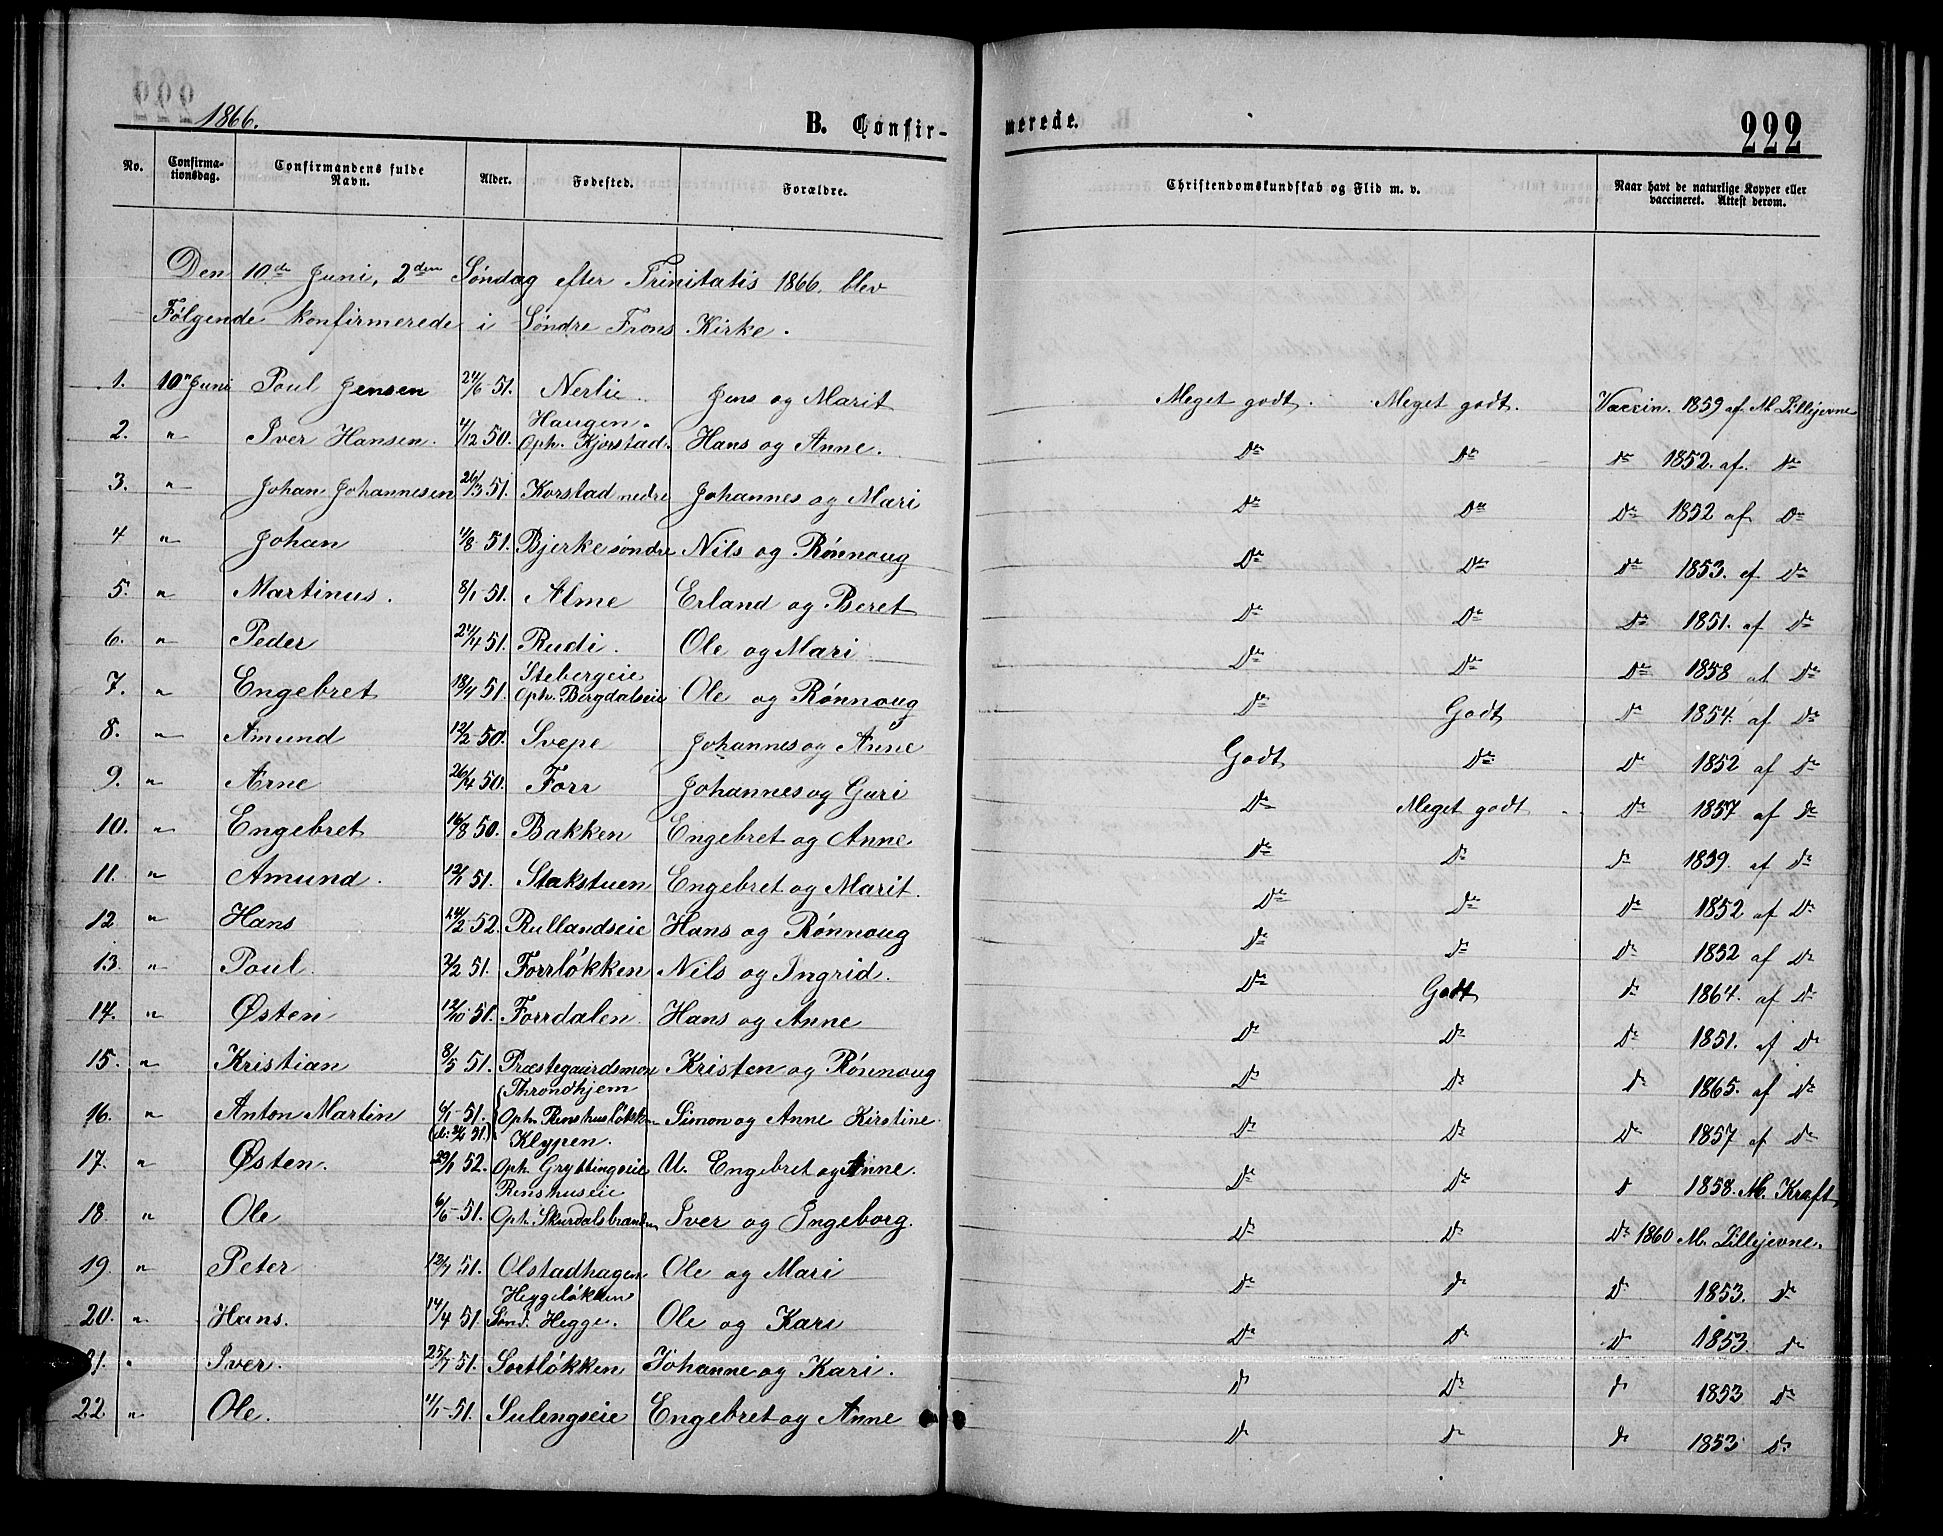 1866.
B. Confir-
merede.
222
No. Confirma-tionsdag. Confirmandens fulde Navn. Alder. Fødested. Forældre. Christendomskundskab og Flid m. v. Naar havt de naturlige Kopper eller vaccineret. Attest derom.
Den 10de Juni, 2den Søndag efter Trinitatis 1866. blev
Følgende konfirmerede i Søndre Frons Kirke.
1. 10n Juni Poul Jensen 24/6 51. Nerlie. Jens og Marit Meget godt. Meget godt. Vaccin. 1859 af M. Lillejevne
2. " Iver Hansen. 4/12 50. Haugen. Oph. Kjorstad. Hans og Anne. Do Do Do 1852. af. Do
3. " Johan Johannesen 26/3 51. Korstad nedre Johannes og Mari Do Do Do 1852 af Do
4 " Johan 4/8 51. Bjerke søndre Nils og Rønnoug Do Do Do 1853. af Do
5. " Martinus. 8/1 51. Alme Erland og Beret Do Do Do 1851. af Do
6. " Peder 24/4 51. Rudi. Ole og Mari Do Do Do 1858 af Do
7. " Engebret 18/4 51. Stebergeie Oph. Bergdalseie Ole og Rønnoug Do Godt Do 1854. af Do
8. " Amund 12/2 50. Svepe Johannes og Anne Godt Do Do 1852 af Do
9. " Arne 26/4 50. Forr Johannes og Guri Do Meget godt Do 1857 af do
10. " Engebret 16/8 50. Bakken Engebret og Anne. Do Do Do 1859. af do
11. " Amund. 12/1 51. Stakstuen Engebret og Marit. Do Do Do 1852 af Do
12 " Hans 24/2 52. Rullandseie Hans og Rønnoug Do Do Do 1852 af Do
13. " Poul. 3/2 51. Forrløkken Nils og Ingrid. Do Godt Do 1864. af Do
14. " Østen 12/10 51. Forrdalen. Hans og Anne Do Do Do 1851. af Do
15. " Kristian 8/5 51. Præstegaardsmon Kristen og Rønnoug Do Do Do 1865. af Do
16. " Anton Martin 6/1 51. Throndhjem Oph. Renshusløkken Simon og Anne Kirstine Do Do Do 1857 af Do
17. " Østen. 29/1 52. Klypen. Oph. Gryttingseie U. Engebret og Anne. Do Do D 1858. M. Kraft
18. " Ole 6/6 51. Renshuseie Oph. Skurdalsbranden Iver og Ingeborg. Do Do Do 1860 M. Lillejevne.
19. " Peter 12/7 51. Olstadhagen Ole og Mari Do do Do 1853. do
20. " Hans. 14/4 51. Heggeløkken Sønd. Hegge. Ole og Kari Do Do Do 1853 do
21. " Iver. 25/7 51. Sortløkken Johanne og Kari. do Do do 1853 do
22 " Ole. 11/1 51. Sulengseie Engebret og Anne Do Do do 1853 Do